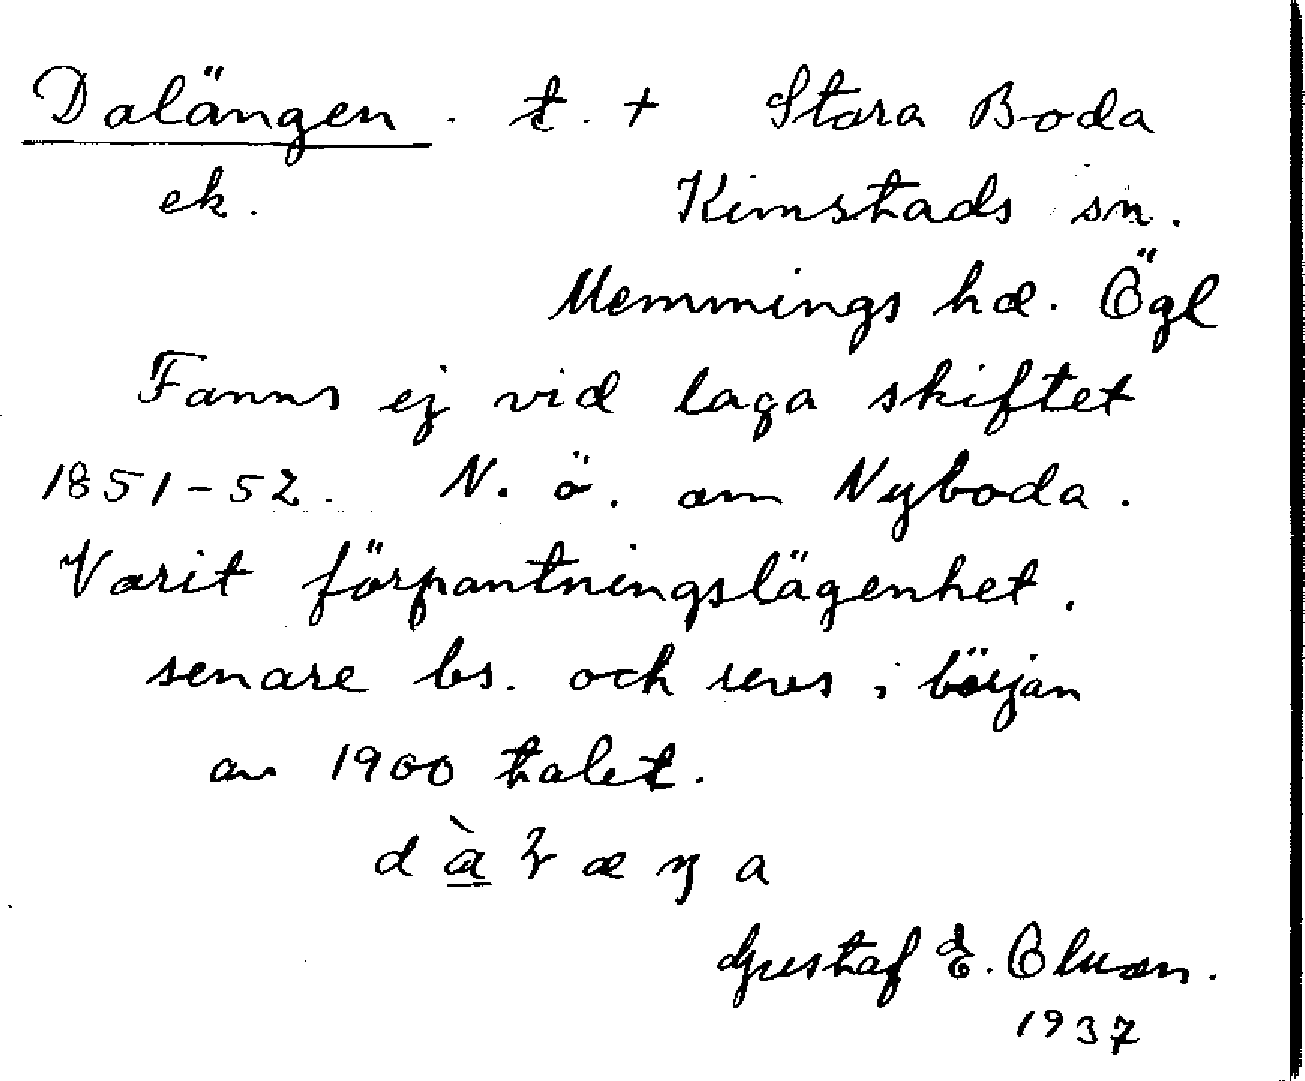 Dalängen. t. + Stora Boda
ek. Kimstads sn.
Memmings hd. Ögl
Fanns ej vid laga skiftet
1851-52. N. ö. om Nyboda.
Varit förpantningslägenhet.
senare bs. och revs i början
av 1900 talet.
Gustaf E.
1937